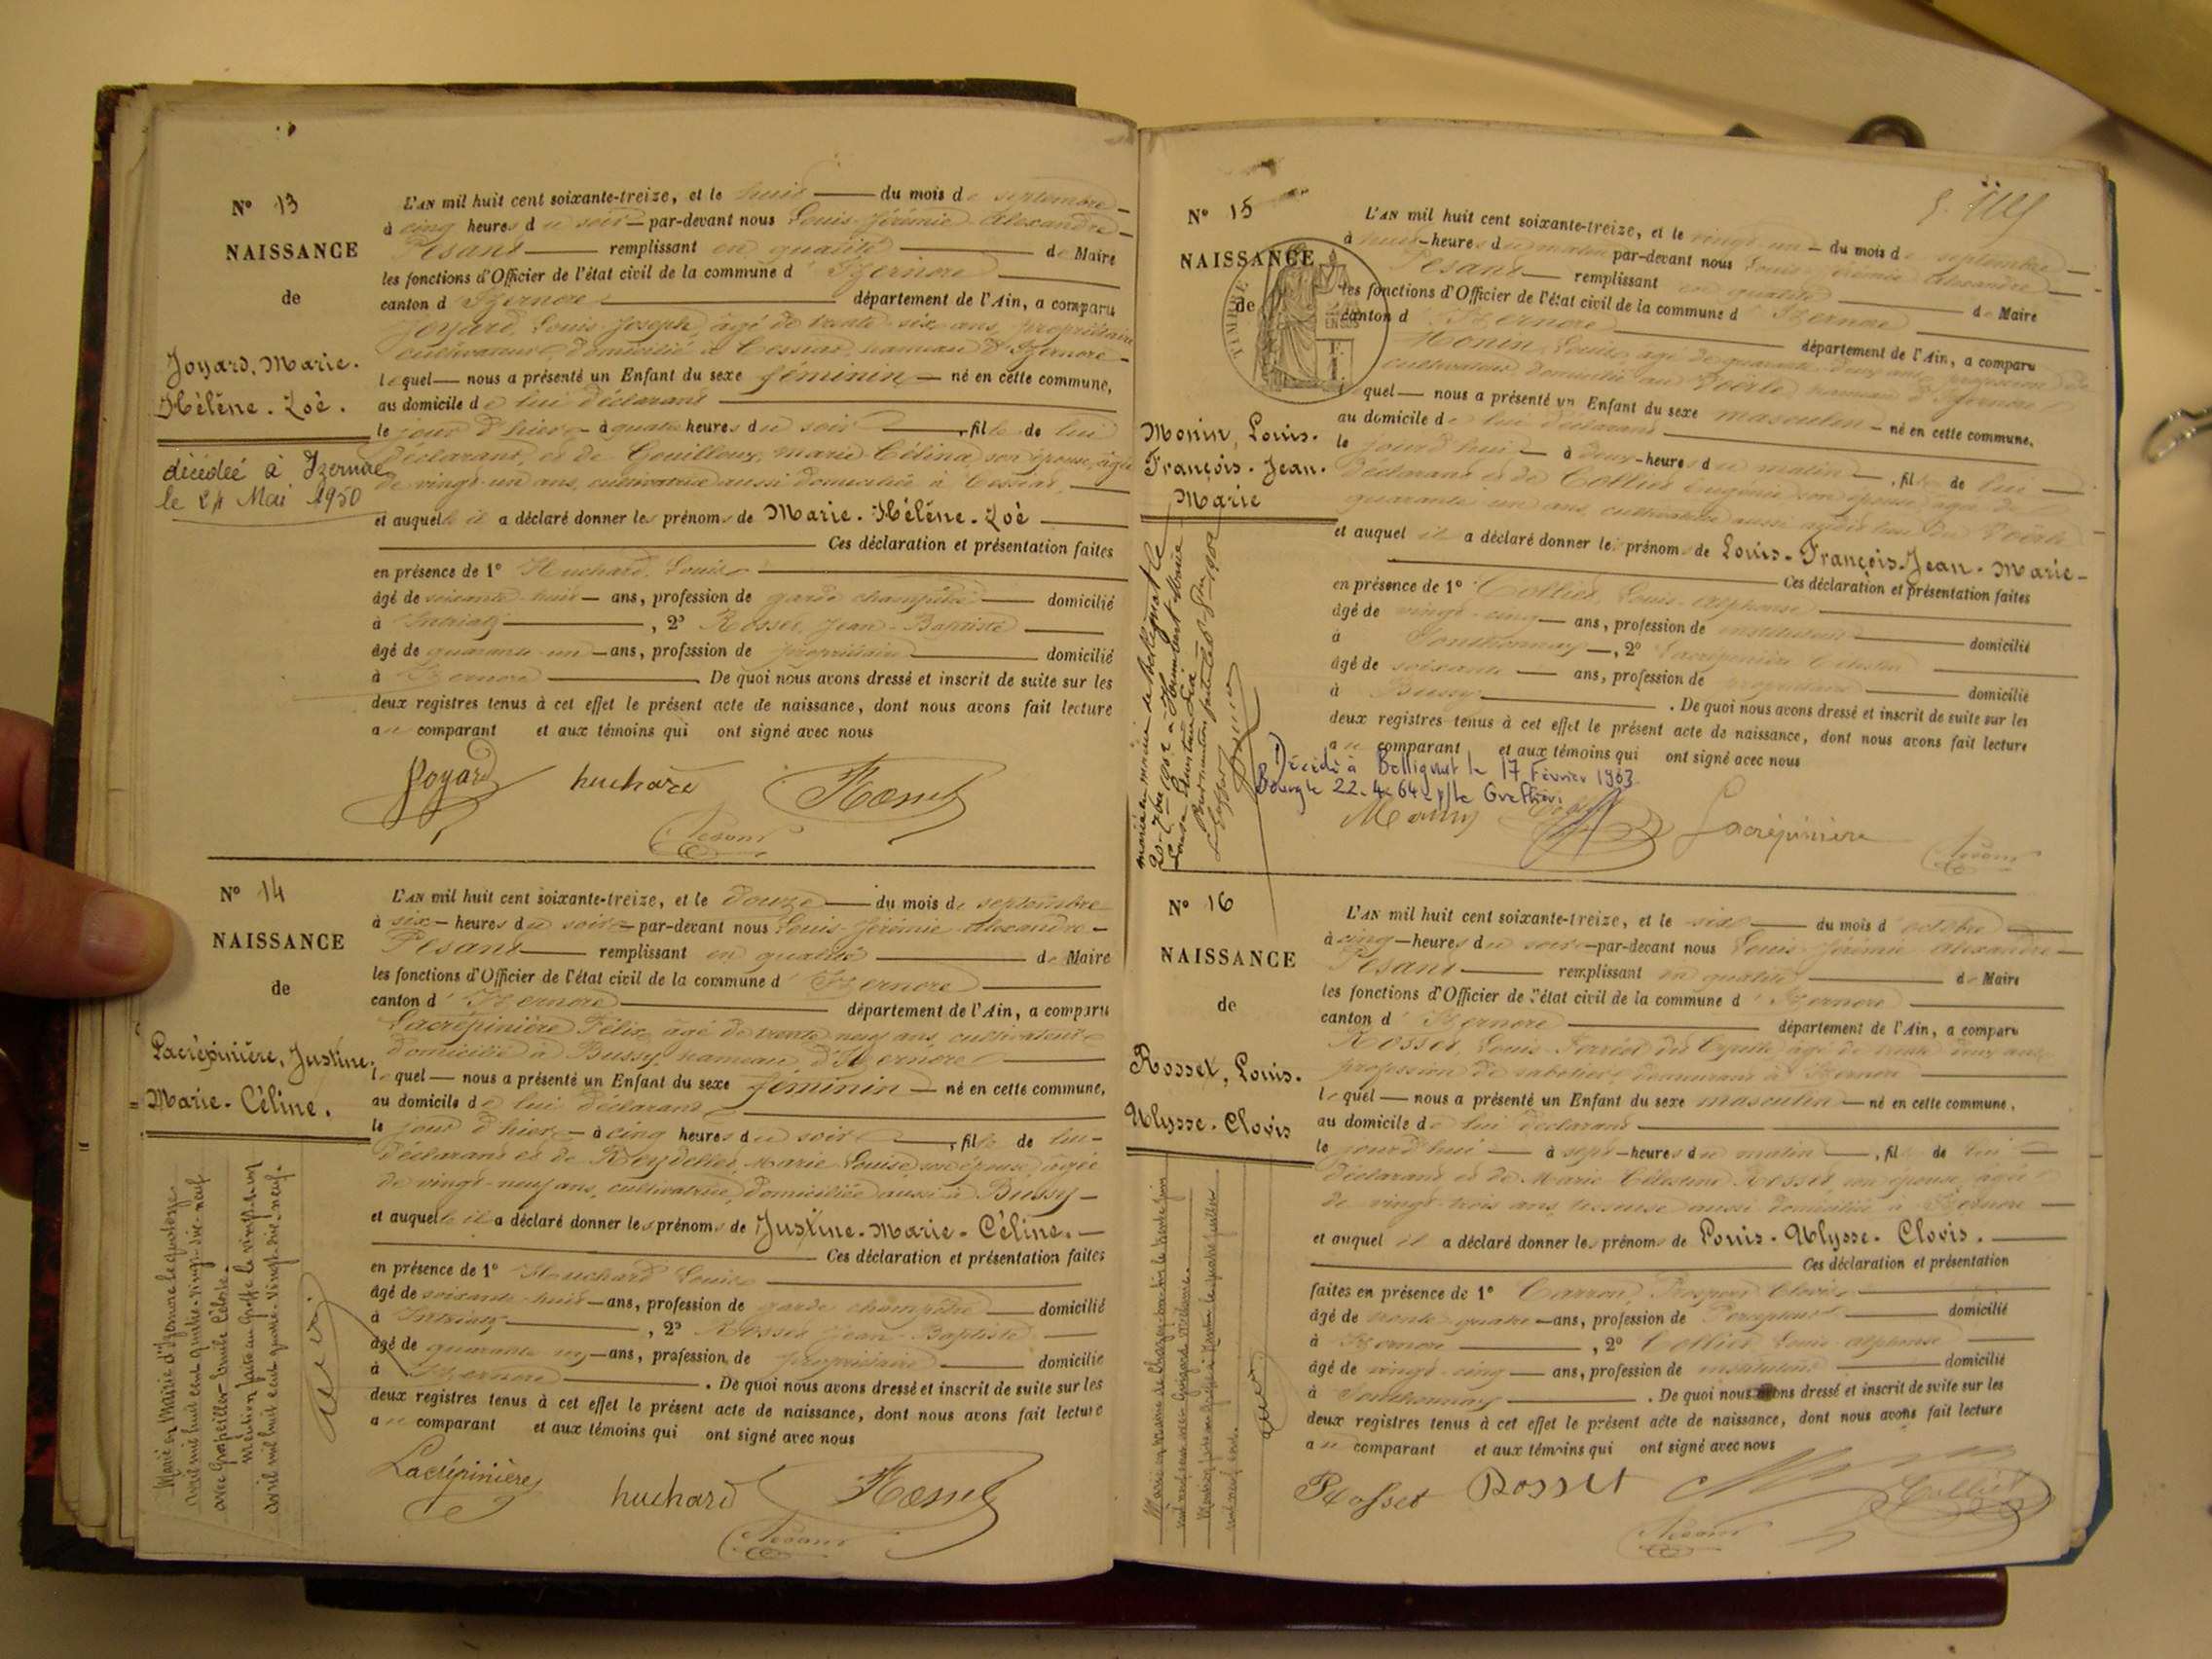 N° 13
NAISSANCE
de
Joyard, Marie.
Hélène. Zoé.
décédée à Izernore
le 24 Mai 1950
L'AN mil huit cent soixante-treize, et le huit du mois de septembre
à cinq heures du soir par-devant nous Louis Jérémie Alexandre
Pesant remplissant en qualité de Maire
les fonctions d'Officier de l'état civil de la commune d' Izernore
canton d' Izernore département de l'Ain, a comparu
Joyard, Louis Joseph, âgé de trente six ans, propriétaire
cultivateur, domicilié à Cessiat, hameau d'Izernore
lequel nous a présenté un Enfant du sexe féminin né en cette commune,
au domicile de lui déclarant
le jour d'hier à quatre heures du soir, fille de lui
déclarant, et de Gouilloux, Marie Célina, son épouse, âgée
de vingt un ans, cultivatrice aussi domiciliée à Cessiat,
et auquelle il a déclaré donner les prénoms de Marie. Hélène. Zoé
Ces déclaration et présentation faites
en présence de 1° Huchard, Louis
âgé de soixante huit ans, profession de garde champêtre domicilié
à Intriat, 2° Rosset, Jean Baptiste
âgé de quarante un ans, profession de propriétaire domicilié
à Izernore. De quoi nous avons dressé et inscrit de suite sur les
deux registres tenus à cet effet le présent acte de naissance, dont nous avons fait lecture
au comparant et aux témoins qui ont signé avec nous
Joyard huchard Rosset
Pesant
N° 14
NAISSANCE
de
Lacrépinière, Justine.
Marie. Céline.
Marié en Mairie d'Izernore le quatorze
avril mil huit cent quatre-vingt-dix-neuf
avec Grapeiller Emile Céleste.
Mention faite au Greffe le vingt-deux
avril mil huit cent quatre-vingt-dix-neuf.
L'AN mil huit cent soixante-treize, et le douze du mois de septembre
à six heures du soir par-devant nous Louis Jérémie Alexandre
Pesant remplissant en qualité de Maire
les fonctions d'Officier de l'état civil de la commune d' Izernore
canton d' Izernore département de l'Ain, a comparu
Lacrépinière Félix, âgé de trente neuf ans, cultivateur
domicilié à Bussy, hameau d'Izernore
lequel nous a présenté un Enfant du sexe féminin né en cette commune,
au domicile de lui déclarant
le jour d'hier à cinq heures du soir, fille de lui
déclarant et de Reydellet, Marie Louise son épouse, âgée
de vingt-neuf ans, cultivatrice, domiciliée aussi à Bussy
et auquelle il a déclaré donner les prénoms de Justine. Marie. Céline.
Ces déclaration et présentation faites
en présence de 1° Huchard Louis
âgé de soixante huit ans, profession de garde champêtre domicilié
à Intriat, 2° Rosset Jean Baptiste
âgé de quarante un ans, profession de propriétaire domicilié
à Izernore. De quoi nous avons dressé et inscrit de suite sur les
deux registres tenus à cet effet le présent acte de naissance, dont nous avons fait lecture
au comparant et aux témoins qui ont signé avec nous
Lacrépinière huchard Rosset
Pesant
N° 15
NAISSANCE
de
TIMBRE
Monin, Louis.
François. Jean.
Marie
L'AN mil huit cent soixante-treize, et le vingt un du mois de septembre
à huit heures du matin par-devant nous Louis Jérémie Alexandre
Pesant remplissant en qualité de Maire
les fonctions d'Officier de l'état civil de la commune d' Izernore
canton d' Izernore département de l'Ain, a comparu
Monin, Louis, âgé de quarante deux ans, profession de
cultivateur domicilié au Voerle hameau d'Izernore
quel nous a présenté un Enfant du sexe masculin né en cette commune,
au domicile de lui déclarant
le jourd'hui à deux heures du matin, fils de lui
déclarant et de Collier Eugénie son épouse âgée de
quarante un ans, cultivatrice aussi
et auquel il a déclaré donner les prénoms de Louis-François-Jean-Marie-
Ces déclaration et présentation faites
en présence de 1° Collier, Louis Alphonse
âgé de vingt-cinq ans, profession de instituteur domicilié
à Sonthonnay, 2° Lacrépinière Célestin
âgé de soixante ans, profession de propriétaire domicilié
à Bussy. De quoi nous avons dressé et inscrit de suite sur les
deux registres tenus à cet effet le présent acte de naissance, dont nous avons fait lecture
au comparant et aux témoins qui ont signé avec nous
Décédé à Bellignat le 17 Février 1963
Bourg le 22.4.64 p/le Greffier.
Monin Lacrépinière
Pesant
N° 16
NAISSANCE
de
Rosset, Louis.
Ulysse. Clovis
L'AN mil huit cent soixante-treize, et le six du mois d'octobre
à cinq heures du soir par-devant nous Louis Jérémie Alexandre
Pesant remplissant en qualité de Maire
les fonctions d'Officier de l'état civil de la commune d' Izernore
canton d' Izernore département de l'Ain, a comparu
Rosset, Louis âgé de trente deux ans
profession de sabotier, demeurant à Izernore
lequel nous a présenté un Enfant du sexe masculin né en cette commune,
au domicile de lui déclarant
le jourd'hui à sept heures du matin, fils de lui
déclarant et de Marie Célestine Rosset son épouse, âgée
de vingt-trois ans, tisseuse aussi domiciliée à Izernore
et auquel il a déclaré donner les prénoms de Louis. Ulysse. Clovis.
Ces déclaration et présentation
faites en présence de 1° Carron, Prosper Clovis
âgé de trente quatre ans, profession de Percepteur domicilié
à Izernore, 2° Collier Louis Alphonse
âgé de vingt-cinq ans, profession de instituteur domicilié
à Sonthonnay. De quoi nous avons dressé et inscrit de suite sur les
deux registres tenus à cet effet le présent acte de naissance, dont nous avons fait lecture
au comparant et aux témoins qui ont signé avec nous
Rosset Rosset Collier
Pesant